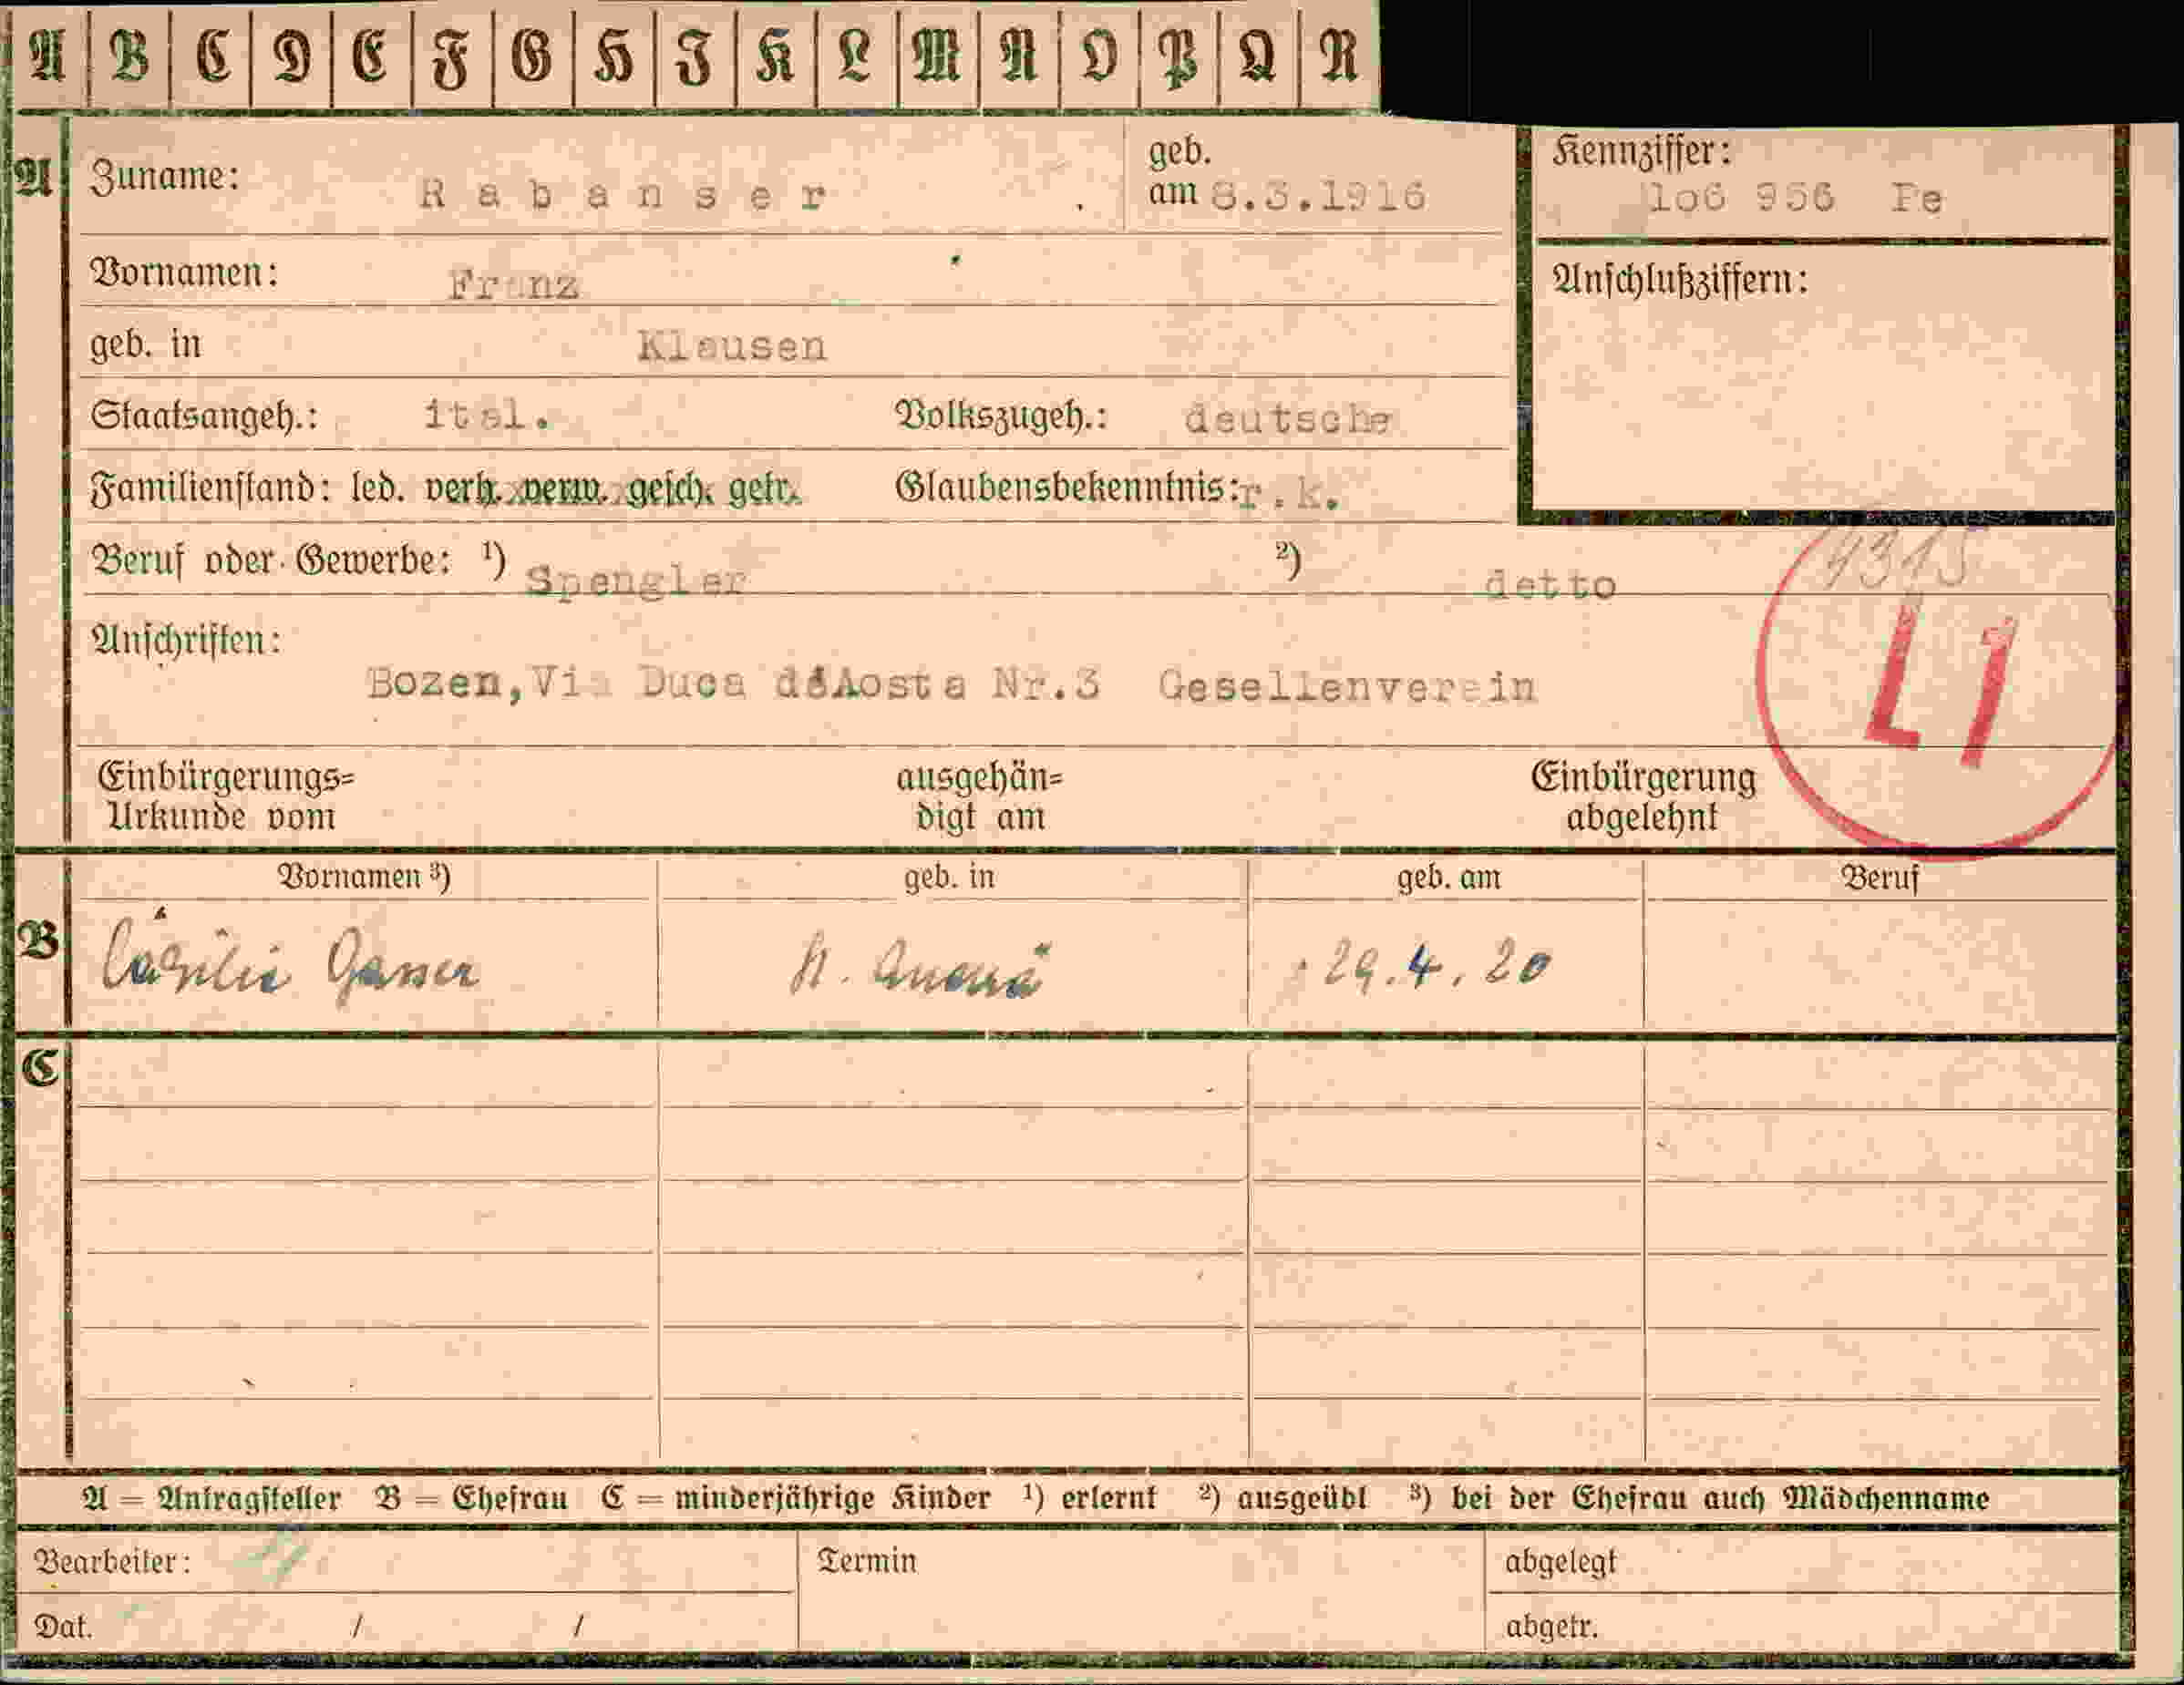 A B C D E F G H I K L M N O P Q R
A Zuname: Rabanser geb. am 8.3.1916 Kennziffer: 1o6 956 Pe
Vornamen: Franz Anschlußziffern:
geb. in Klausen
Staatsangeh.: ital. Volkszugeh.: deutsche
Familienstand: led. verh. verw. gesch. getr. Glaubensbekenntnis: r.k.
Beruf oder Gewerbe: ¹) Spengler ²) detto
Anschriften: L1
Bozen, Via Duca d'Aosta Nr.3 Gesellenverein
Einbürgerungs= ausgehän= Einbürgerung
Urkunde vom digt am abgelehnt
Vornamen ³) geb. in geb. am Beruf
B Cäzilia Gasser 29.4.20
C
A = Antragsteller B = Ehefrau C = minderjährige Kinder ¹) erlernt ²) ausgeübt ³) bei der Ehefrau auch Mädchenname
Bearbeiter: Termin abgelegt
Dat. / / abgetr.